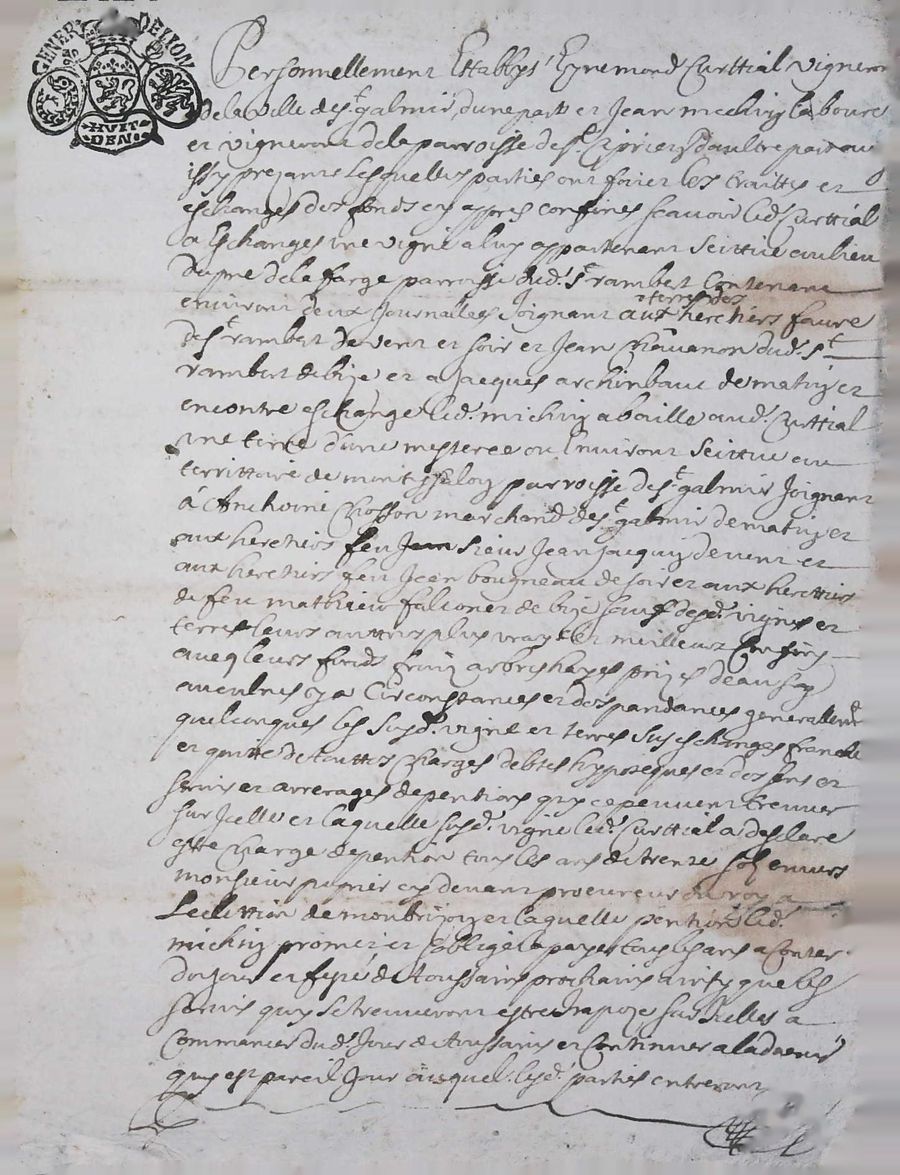 GENER DE LYON
HUIT
DEN
Personnellement Establys Eynemond Curttial vigneron
de la ville de st galmir, dune part et Jean michiy laboure
et vigneron de la parroisse de st Ciprien daultre part
lesquelles parties ont les traittes et
eschanges des fonds cy appres confines scavoir led. Curttial
a Eschanges une vigne a luy appartenant Scittue au lieu
de la farge parroisse dud. st rambert Contenant
environ deux Journallees Joignant aux terres des herehiers faure
de st rambert de vent et soir et Jean Chavanon dud. st
rambert de bize et a Jacques archinbaut de matin et
encontre eschange led. michiy a baille aud. Curttial
une terre dune mesteree ou Environt Scittue au
territtoire de parroisse de st galmir Joignant
á Anthoine marchand de st galmir de matin et
aux herehiers feu Jean sieur Jean Jacquiy de vent et
aux herehiers feu Jean bougneau de soir et aux herettiers
de feu matthieu falconet de bize sauf desd. vignes et
terres leurs auttres plus vrays et meilleurs Confins
aveq leurs fonds fruiz arbres hayes prizes deau
Circonstances et despandances generallemt
quelconques les susd. vigne et terres sus eschanges franche
et quitte de touttes Charges debtes hyppoteques et des sens et
servis et arrerages de pentions quy ce peuvent treuver
sur Icelle et laquelle susd. vigne led. Curttial a desclare
estre Charge de pention tous les ans de trente sols envers
monsieur cy devant procureur du roy a
Leslettion de montbrizon et laquelle pention led.
michiy promet et Soblige a payer tous les ans a Conter
du Jour et feste de toussains prochains ainsy que les
servis quy se treuveront estre Impoze sur Icelles a
Commancer dud. Jour de toussains et Continuer a ladvenir
quy est pareil Jour ausquel lesd. parties entreront